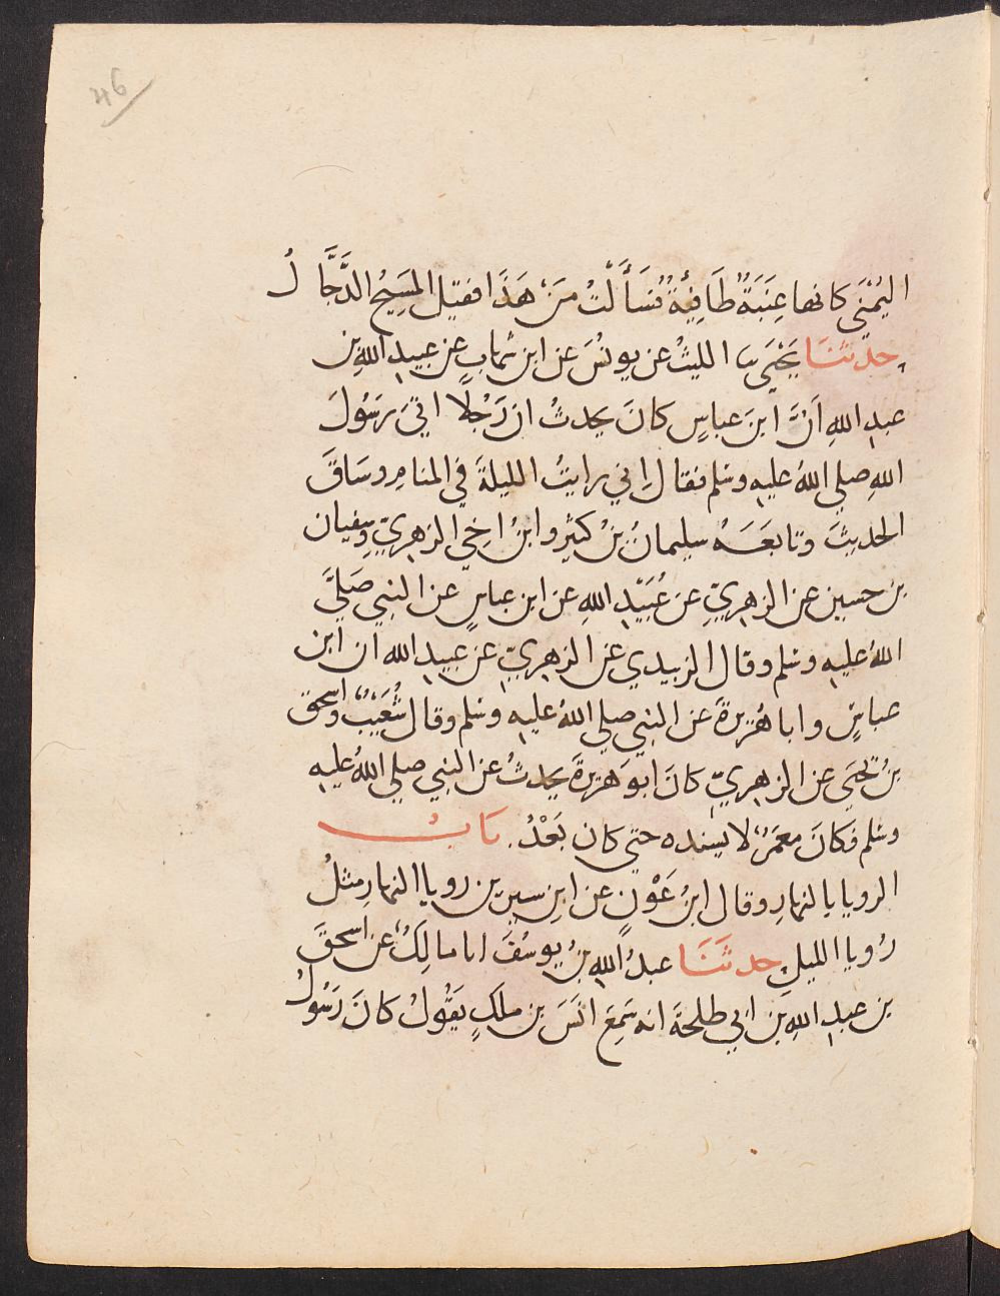 46
اليُمْنَي كانها عِنَبَةٌ طَافِئَةٌ فسَأَلْتُ مَنْ هَذَا فقيل المَسِيحُ الدَّجَّالُ
حدثنَا يَحْيَى نا الليثُ عن يونُسَ عن ابن شهابٍ عن عبيدِ اللهِ بن
عبدِ اللهِ اَنَّ ابنَ عباسٍ كانَ يحدثُ ان رَجُلًا اتَى رَسُولَ
اللهِ صلي اللهُ عليهِ وسَلم فقال اِني رايتُ الليلةَ في المنامِ وسَاقَ
الحديثَ وتابعَهُ سليمانُ بنُ كثيرٍ وابنُ اخِي الزهريِّ وسفيان
بن حسين عن الزهريِّ عن عُبَيْدِ اللهِ عن ابن عباسٍ عن النبي صَلَّي
اللهُ عليهِ وسلم وقال الزبيدي عن الزهريِّ عن عبيدِ الله ان ابن
عباسٍ وابا هُرَيرةَ عن النبي صلي اللهُ عليهِ وسلم وقال شُعَيْبٌ واسحق
بنُ يحيَى عن الزهريِّ كانَ ابو هَرَيرةَ يحدثُ عن النبي صلي اللهُ عليهِ
وسلم وكانَ معمَرٌ لا يسنده حتي كان بَعْدُ. بَابُ
الرويا بالنهارِ وقال ابنُ عَوْنٍ عن ابنِ سيرين رويا النهارِ مثلُ
رُويا الليلِ حدثَنَا عبدُ اللهِ بنُ يوسُفَ انا مالِكٌ عن اسحقَ
بن عبدِ اللهِ بنِ ابي طلحةَ انه سَمِعَ انَسَ بن ملكٍ يَقُولُ كانَ رَسُولُ